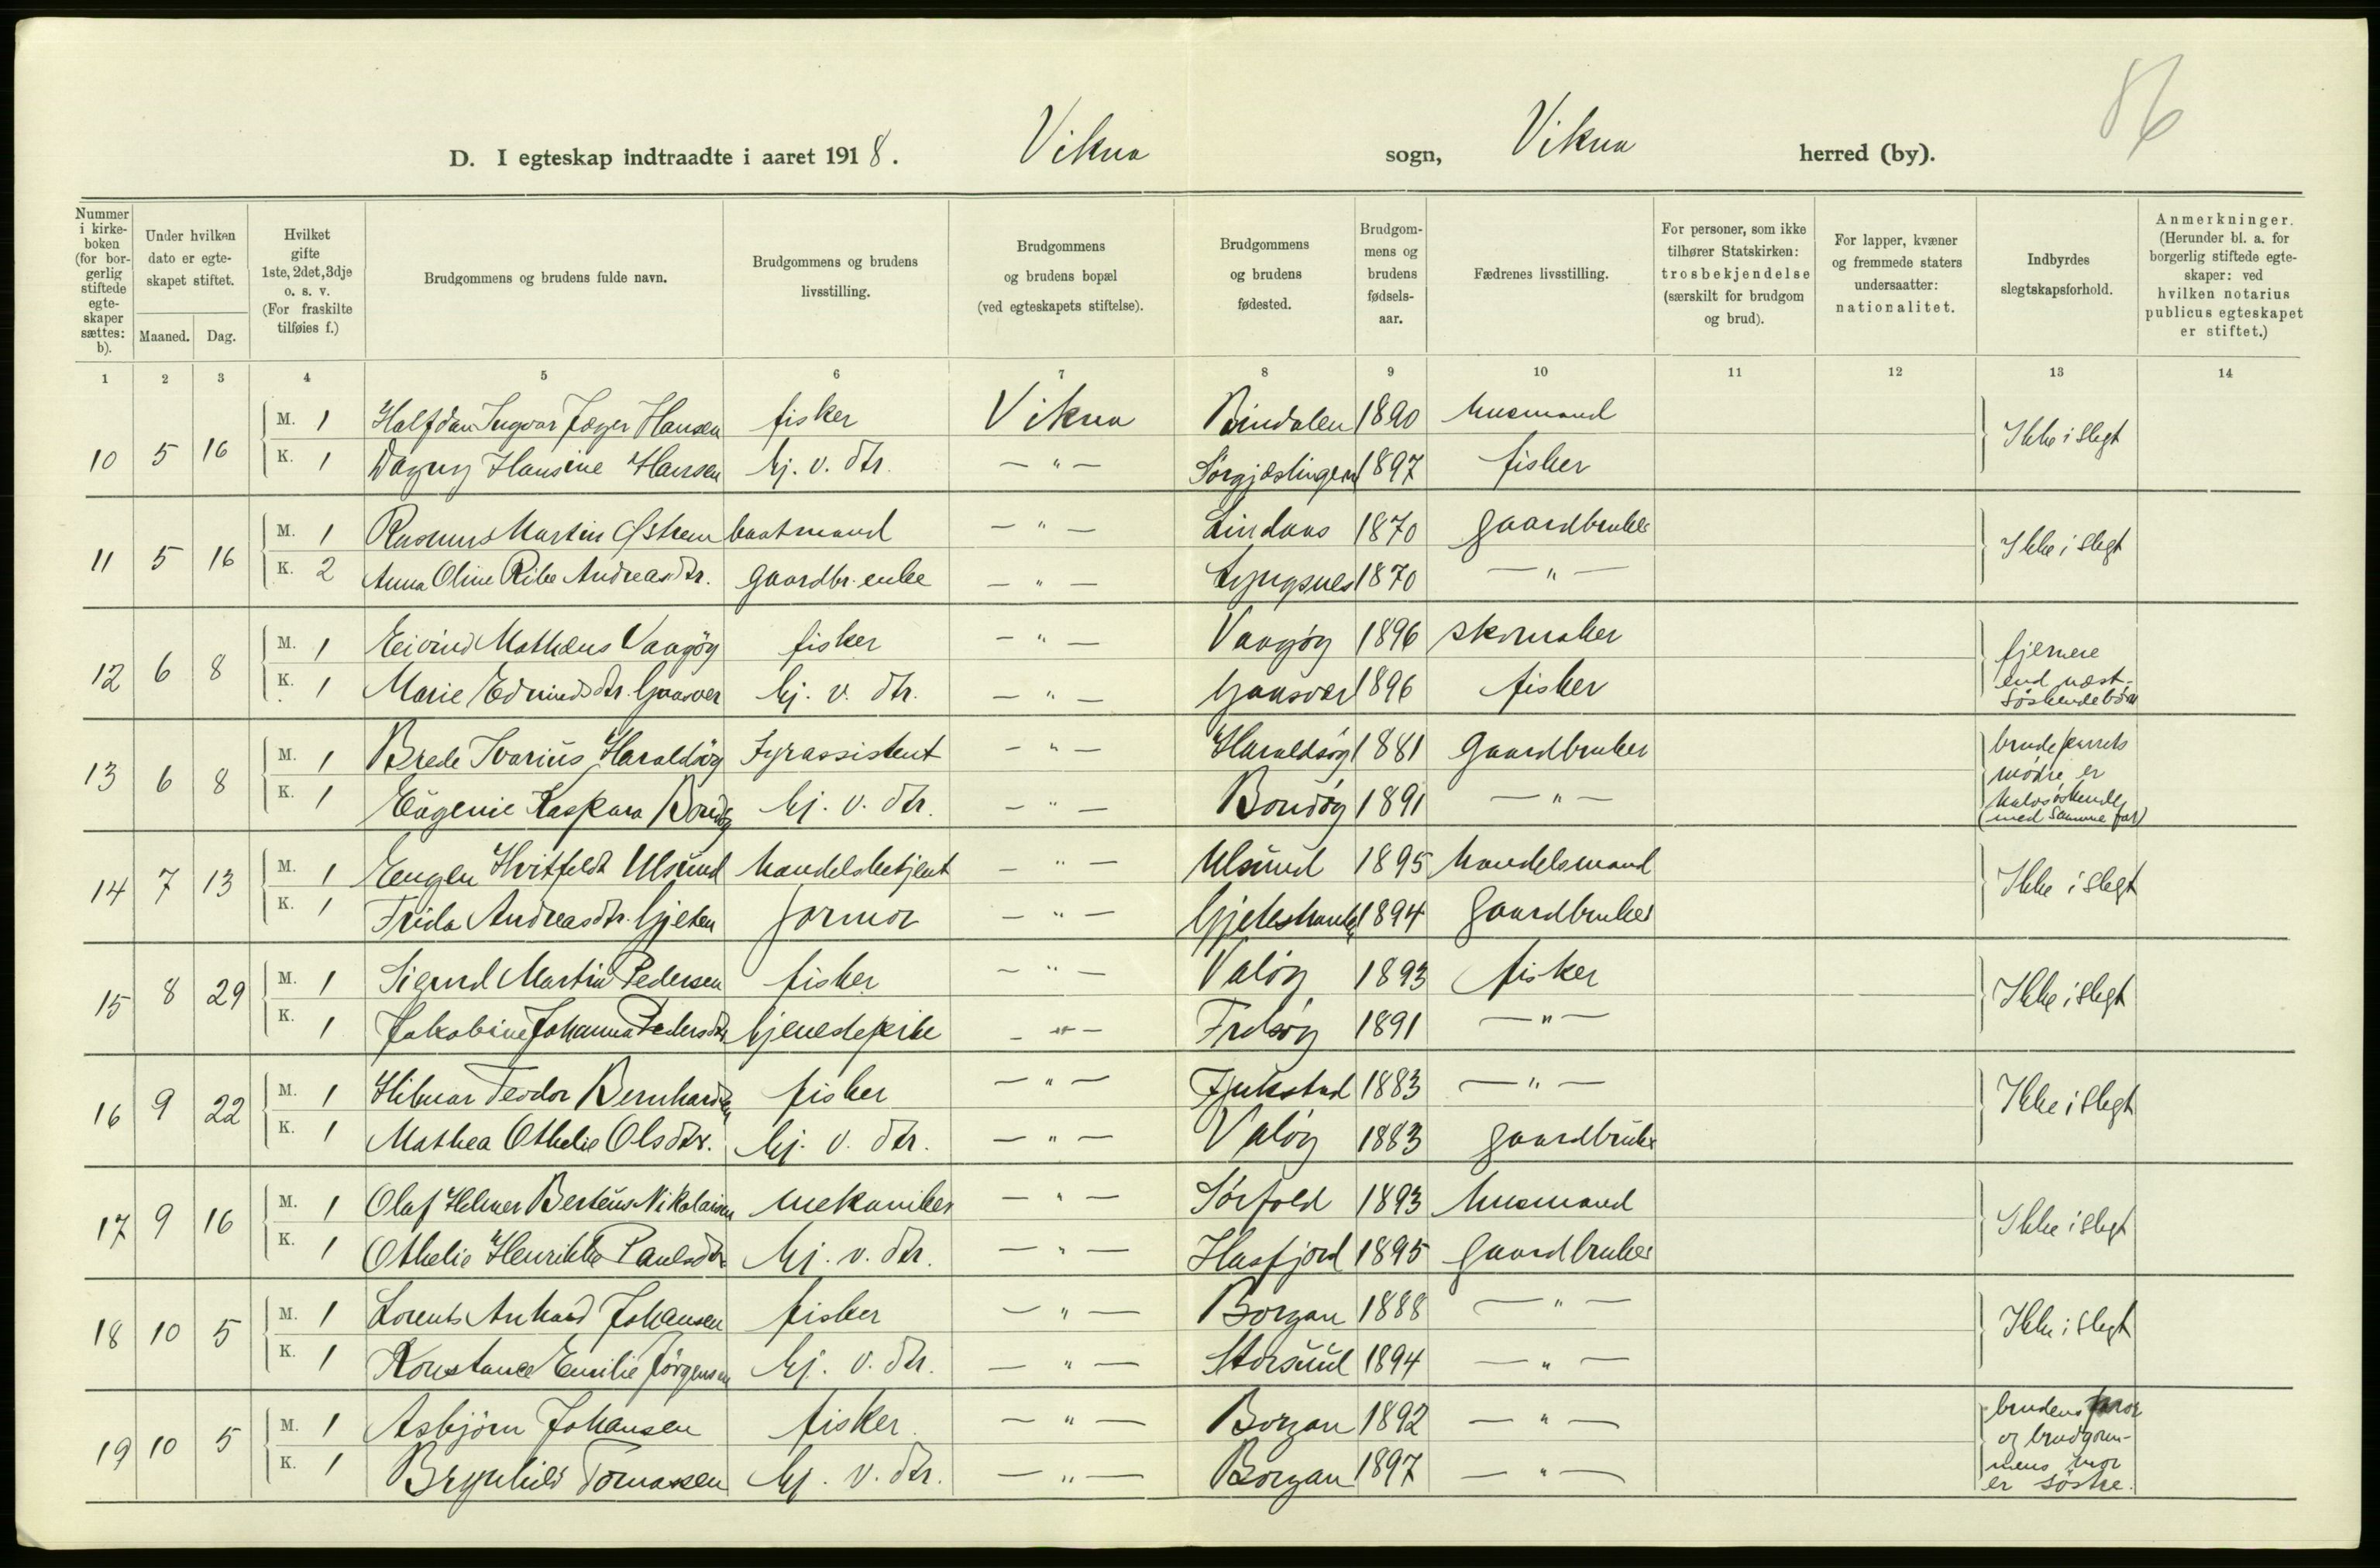 86
D. I egteskap indtraadte i aaret 1918. Vikna sogn, Vikna herred (by).
Nummer i kirke-boken (for bor-gerlig stiftede egte-skaper sættes: b).
Under hvilken dato er egte-skapet stiftet.
Maaned. Dag.
Hvilket gifte 1ste, 2det, 3dje o. s. v. (For fraskilte tilføies f.)
Brudgommens og brudens fulde navn.
Brudgommens og brudens livsstilling.
Brudgommens og brudens bopæl (ved egteskapets stiftelse).
Brudgommens og brudens fødested.
Brudgom-mens og brudens fødsels-aar.
Fædrenes livsstilling.
For personer, som ikke tilhører Statskirken: trosbekjendelse (særskilt for brudgom og brud).
For lapper, kvæner og fremmede staters undersaatter: nationalitet.
Indbyrdes slegtskapsforhold.
Anmerkninger. (Herunder bl. a. for borgerlig stiftede egte-skaper: ved hvilken notarius publicus egteskapet er stiftet.)
1 2 3 4 5 6 7 8 9 10 11 12 13 14
10 5 16 M. 1 Halfdan Ingvar Jæger Hansen fisker Vikna Bindalen 1890 husmand Ikke i slegt
K. 1 Dagny Hansine Hansen hj. v. dtr. — " — Sørgjæslingen 1897 fisker
11 5 16 M. 1 Rasmus Martin Østrem baatmand — " — Lindaas 1870 gaardbruker Ikke i slegt
K. 2 Anna Oline Ribe Andreasdtr. gaardbr. enke — " — Lyngsnes 1870 — " —
12 6 8 M. 1 Eivind Mathæus Vaagøy fisker — " — Vaagøy 1896 skomaker fjernere
K. 1 Marie Edvindsdtr. Gaasvær hj. v. dtr. — " — Gaasvær 1896 fisker end næst-
søskendebørn
13 6 8 M. 1 Brede Ivarius Haraldsøy Fyrassistent — " — Haraldsøy 1881 Gaardbruker brudeparrets
mødre er
K. 1 Eugenie Kaspara Bondøy hj. v. dtr. — " — Bondøy 1891 — " — halvsøskende
(med samme far)
14 7 13 M. 1 Eugen Hvitfeldt Ulsund handelsbetjent — " — Ulsund 1895 handelsmand Ikke i slegt
K. 1 Frida Andreasdtr. Gjeten jormor — " — 1894 Gaardbruker
15 8 29 M. 1 Sigurd Martin Pedersen fisker — " — Valøy 1893 fisker Ikke i slegt
K. 1 Jakobine Johanna Pedersdtr tjenestepike — " — 1891 — " —
16 9 22 M. 1 Hilmar Teodor Bernhardsen fisker — " — Fjukstad 1883 — " — Ikke i slegt
K. 1 Mathea Othelie Olsdtr. hj. v. dtr. — " — Valøy 1883 gaardbruker
17 9 16 M. 1 Olaf Helmer Berteus Nikolaisen mekaniker — " — Sørfold 1893 husmand Ikke i slegt
K. 1 Othelie Henrikke Paulsdtr hj. v. dtr. — " — Hasfjord 1895 gaardbruker
18 10 5 M. 1 Lorents Anhard Johansen fisker — " — Borgan 1888 — " — Ikke i slegt
K. 1 Konstance Emilie Jørgensen hj. v. dtr. — " — Storsund 1894 — " —
19 10 5 M. 1 Asbjörn Johansen fisker — " — Borgan 1892 — " — brudens mor
og brudgom-
K. 1 Brynhild Tomassen hj. v. dtr. — " — Borgan 1897 — " — mens mor
er søstre.